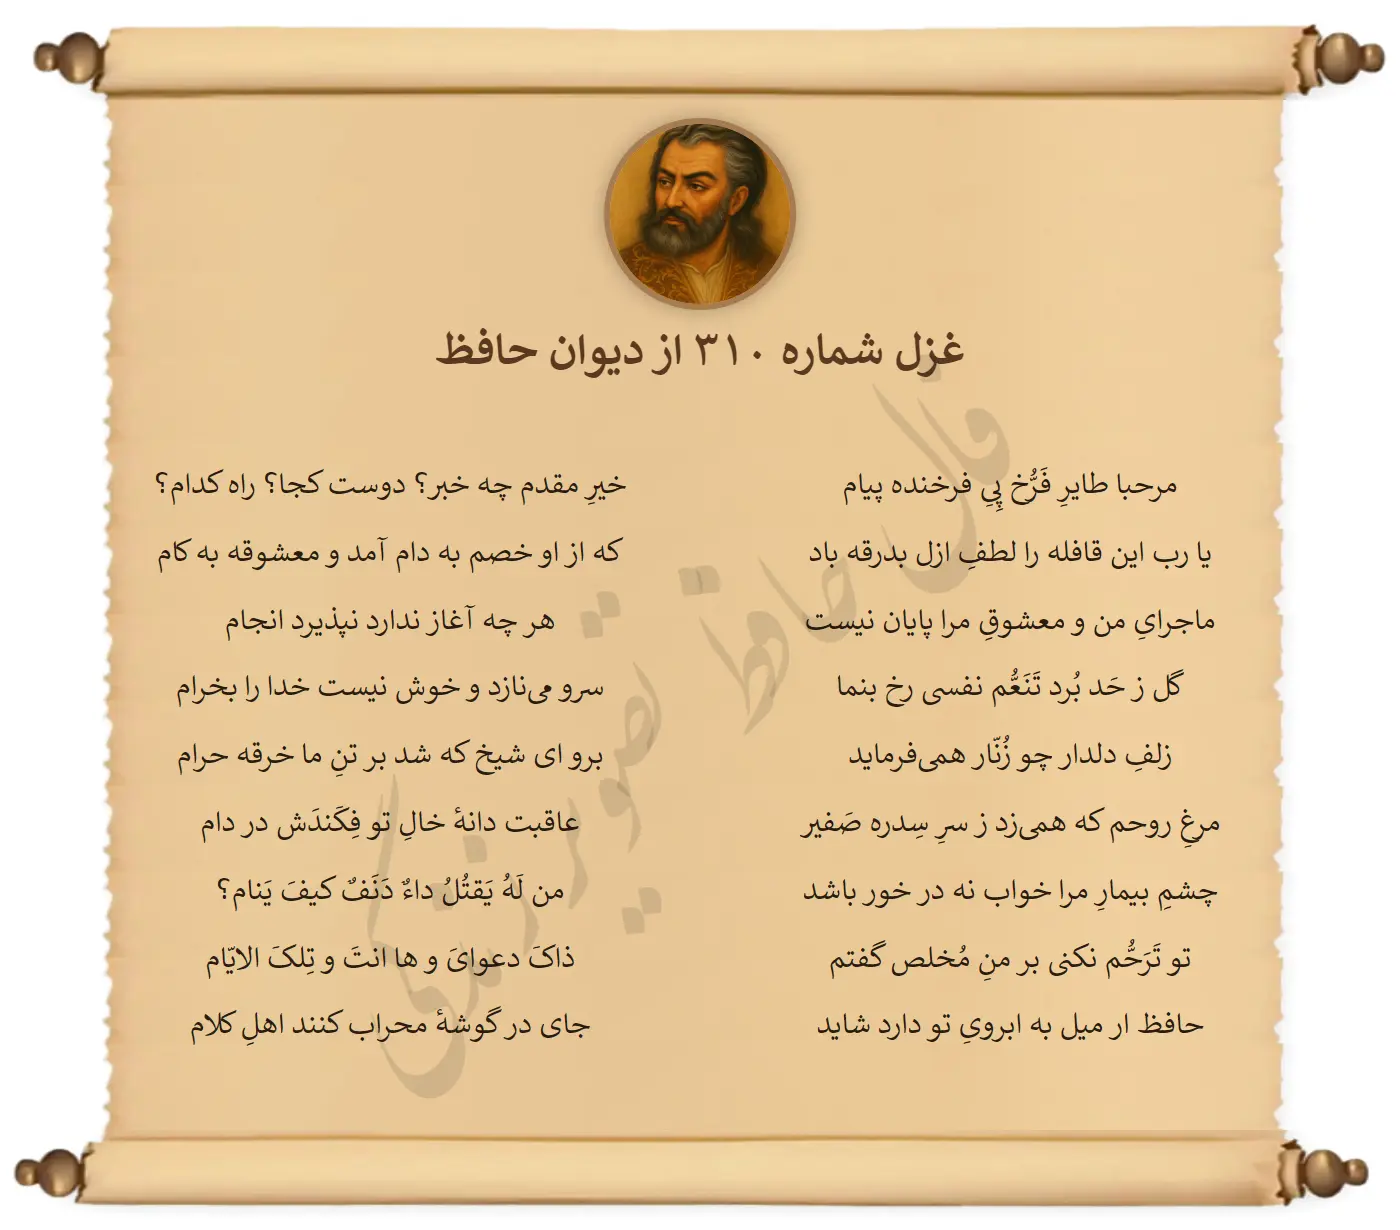 غزل شماره ۳۱۰ از دیوان حافظ
مرحبا طایرِ فَرُّخ پِیِ فرخنده پیام
خیرِ مقدم چه خبر؟ دوست کجا؟ راه کدام؟
یا رب این قافله را لطفِ ازل بدرقه باد
که از او خصم به دام آمد و معشوقه به کام
ماجرایِ من و معشوقِ مرا پایان نیست
هر چه آغاز ندارد نپذیرد انجام
گل ز حَد بُرد تَنَعُّم نفسی رخ بنما
سرو می‌نازد و خوش نیست خدا را بخرام
زلفِ دلدار چو زُنّار همی‌فرماید
برو ای شیخ که شد بر تنِ ما خرقه حرام
مرغِ روحم که همی‌زد ز سرِ سِدره صَفیر
عاقبت دانهٔ خالِ تو فِکَندَش در دام
چشمِ بیمارِ مرا خواب نه در خور باشد
من لَهُ یَقتُلُ داءٌ دَنَفٌ کیفَ یَنام؟
تو تَرَحُّم نکنی بر منِ مُخلص گفتم
ذاکَ دعوایَ و ها انتَ و تِلکَ الایّام
حافظ ار میل به ابرویِ تو دارد شاید
جای در گوشهٔ محراب کنند اهلِ کلام
فال حافظ تصویر زندگی